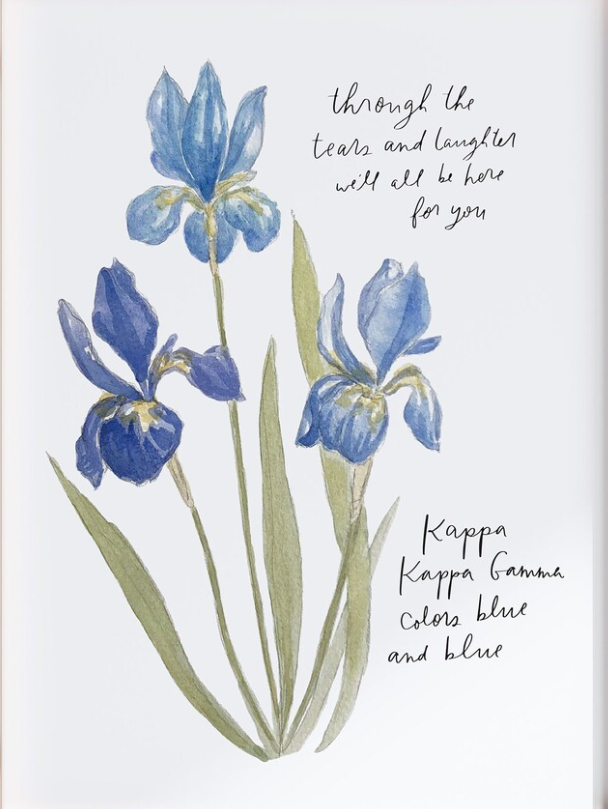 through the
tears and laughter
we'll all be here
for you
Kappa
Kappa Gamma
colors blue
and blue